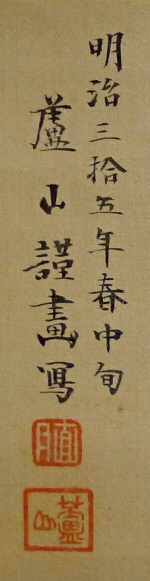 明治三拾五年春中旬
蘆山謹畫寫
蘆山